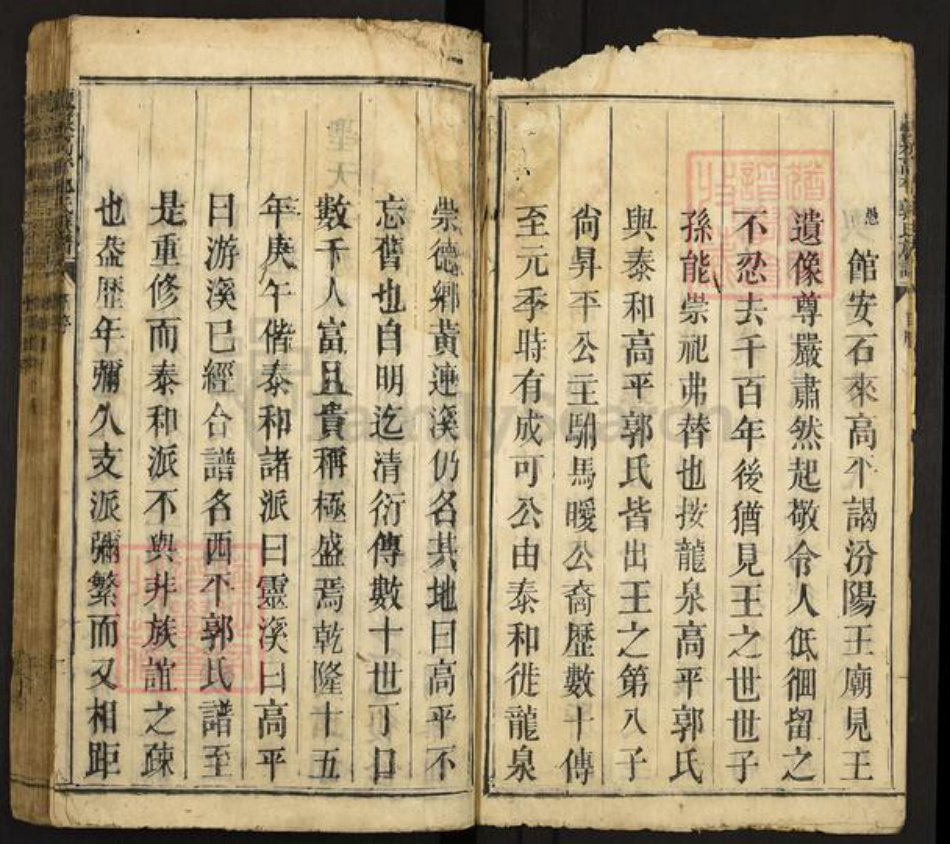 愚館安石來高平謁汾陽王廟見王
遺像尊嚴肅然起敬令人低徊留之
不忍去千百年後猶見王之世世子
孫能崇祀弗替也按龍泉高平郭氏
與泰和高平郭氏皆出王之第八子
尚昇平公主駙馬曖公裔歷數十傳
至元季時有成可公由泰和徙龍泉
崇德鄉黃連溪仍名其地曰高平不
忘舊也自明迄清衍傳數十世丁口
數千人富且貴稱極盛焉乾隆十五
年庚午偕泰和諸派曰靈溪曰高平
曰游溪已經合譜名西平郭氏譜至
是重修而泰和派不與非族誼之疎
也盖歷年彌久支派彌繁而又相距